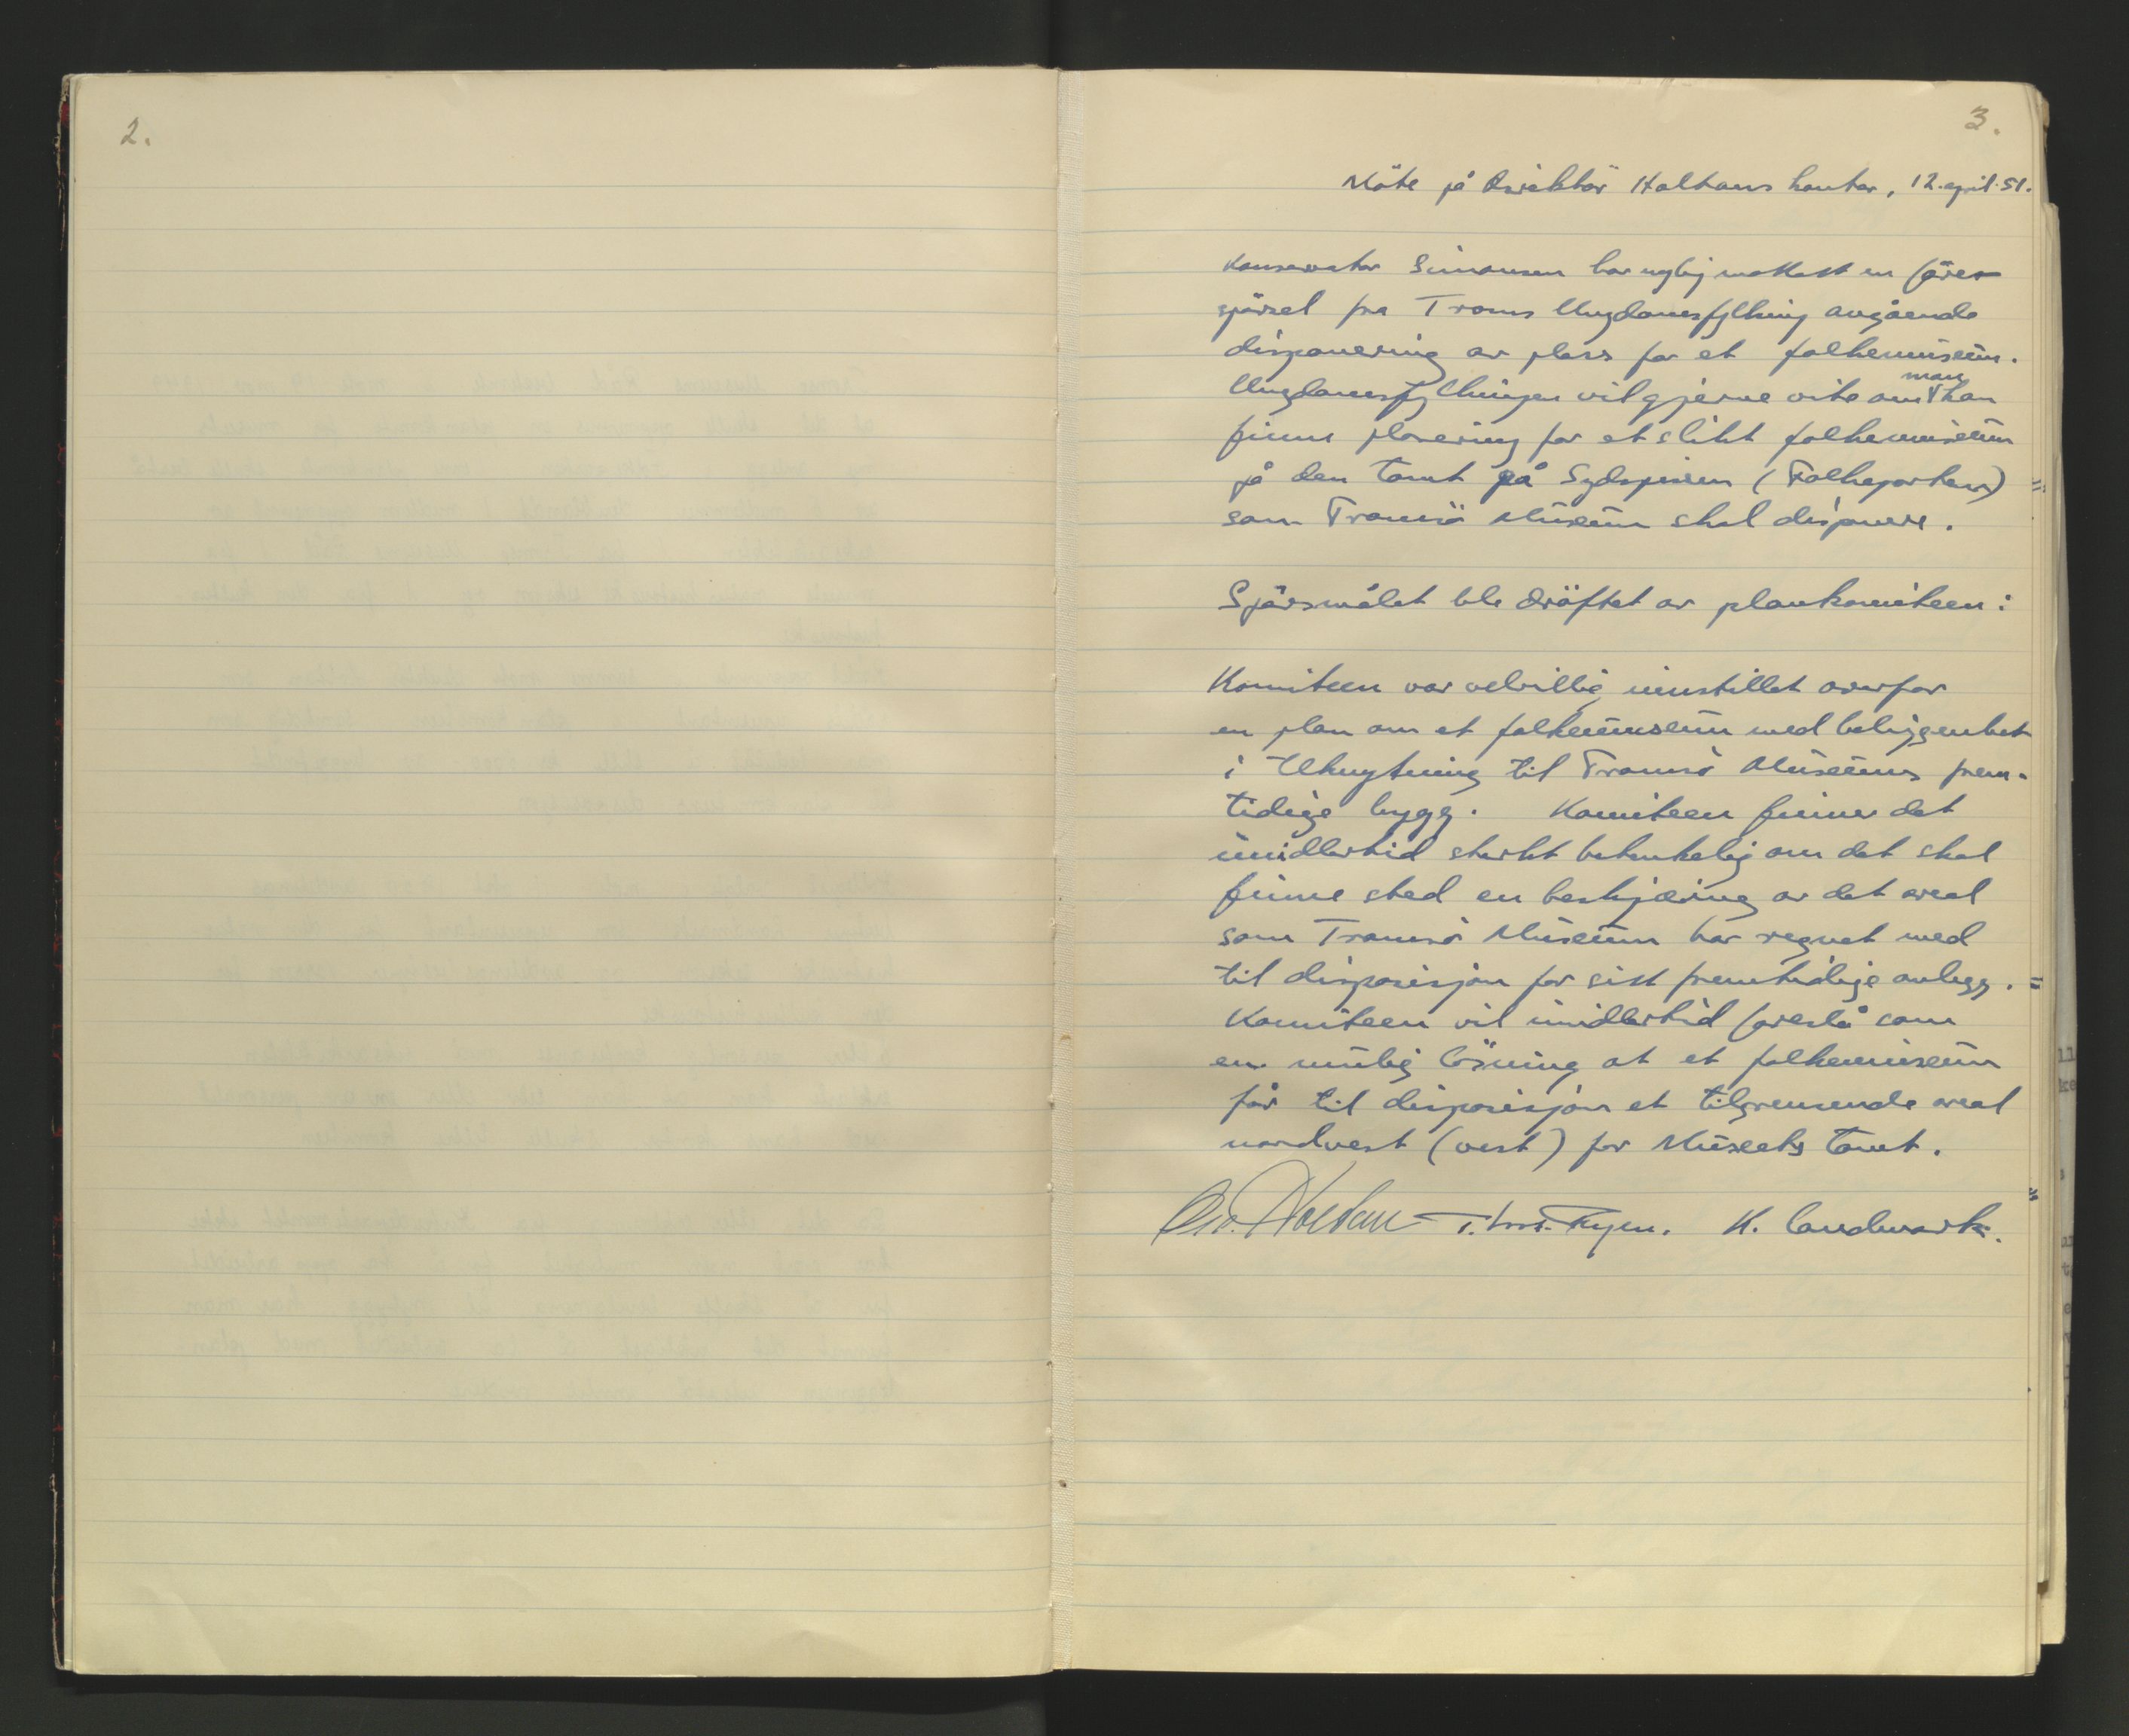 2.
3.
Möte på Direktör Holtans kontor, 12. april. 51.
Konservator Simonsen har nylig mottatt enföre-
spörsel fra Troms Ungdomsfylking angående
disponering av plass for et folkemuseum.
Ungdomsfylkingen vil gjerne vite om man kan
finne plasering for et slikt folkemuseum
på den tomt på Sydspissen (Folkeparken)
som Tromsö Museum skal disponere.
Spörsmålet ble dröftet av plankomiteen:
Komiteen var velvillig innstillet overfor
en plan om et folkemuseum med beliggenhet
i tilknytning til Tromsö Museums frem-
tidige bygg. Komiteen finner det
imidlertid sterkt betenkelig om det skal
finne sted en beskjæring av det areal
som Tromsö Museum har regnet med
til disposisjon for sitt fremtidige anlegg.
Komiteen vil imidlertid foreslå som
en mulig lösning at et folkemuseum
får til disposisjon et tilgrensende areal
nordvest (vest) for Museets tomt.
Holtan K. Landmark.